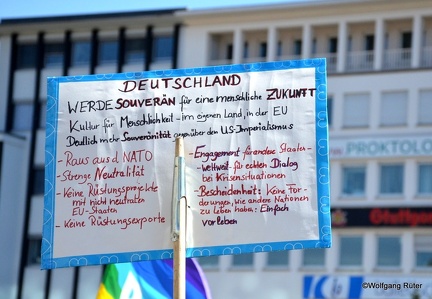 DEUTSCHLAND
WERDE SOUVERÄN für eine menschliche ZUKUNFT
Kultur für Menschlichkeit - im eigenen Land, in der EU
Deutlich mehr Souveränität gegenüber den US-Imperialismus
- Raus aus d. NATO
- Strenge Neutralität
- Keine Rüstungsprojekte
mit nicht neutralen
EU-Staaten
- Keine Rüstungsexporte
- Engagement für andere Staaten -
- Weltweit für echten Dialog
bei Krisensituationen
- Bescheidenheit: Keine For-
derungen, wie andere Nationen
zu leben haben: Einfach
vorleben
PROKTOLO
©Wolfgang Rüter